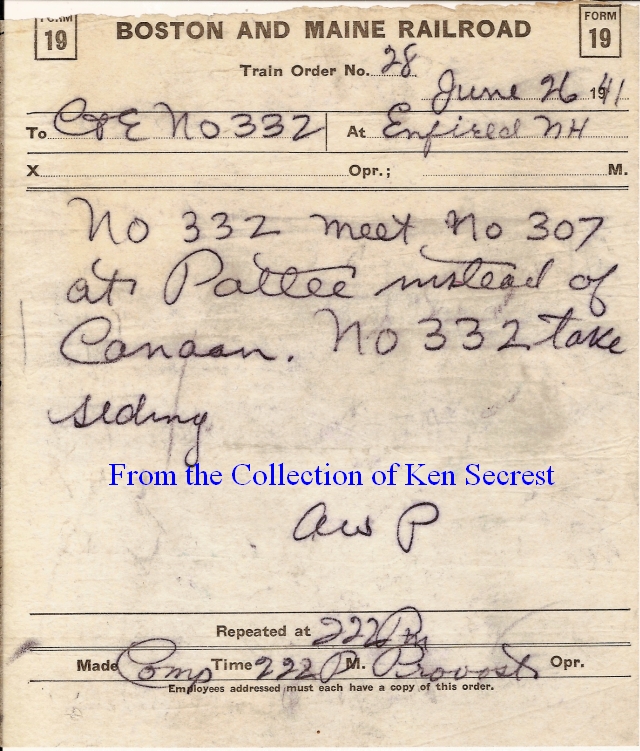 FORM 19 BOSTON AND MAINE RAILROAD FORM 19
Train Order No. 28
June 26 1941
To C&E No 332 At Enfield NH
X Opr.; M.
No 332 meet No 307
at Pattee instead of
Canaan. No 332 take
siding
From the Collection of Ken Secrest
AWP
Repeated at 222 Pm
Made Comp Time 222 P M. Provost Opr.
Employees addressed must each have a copy of this order.